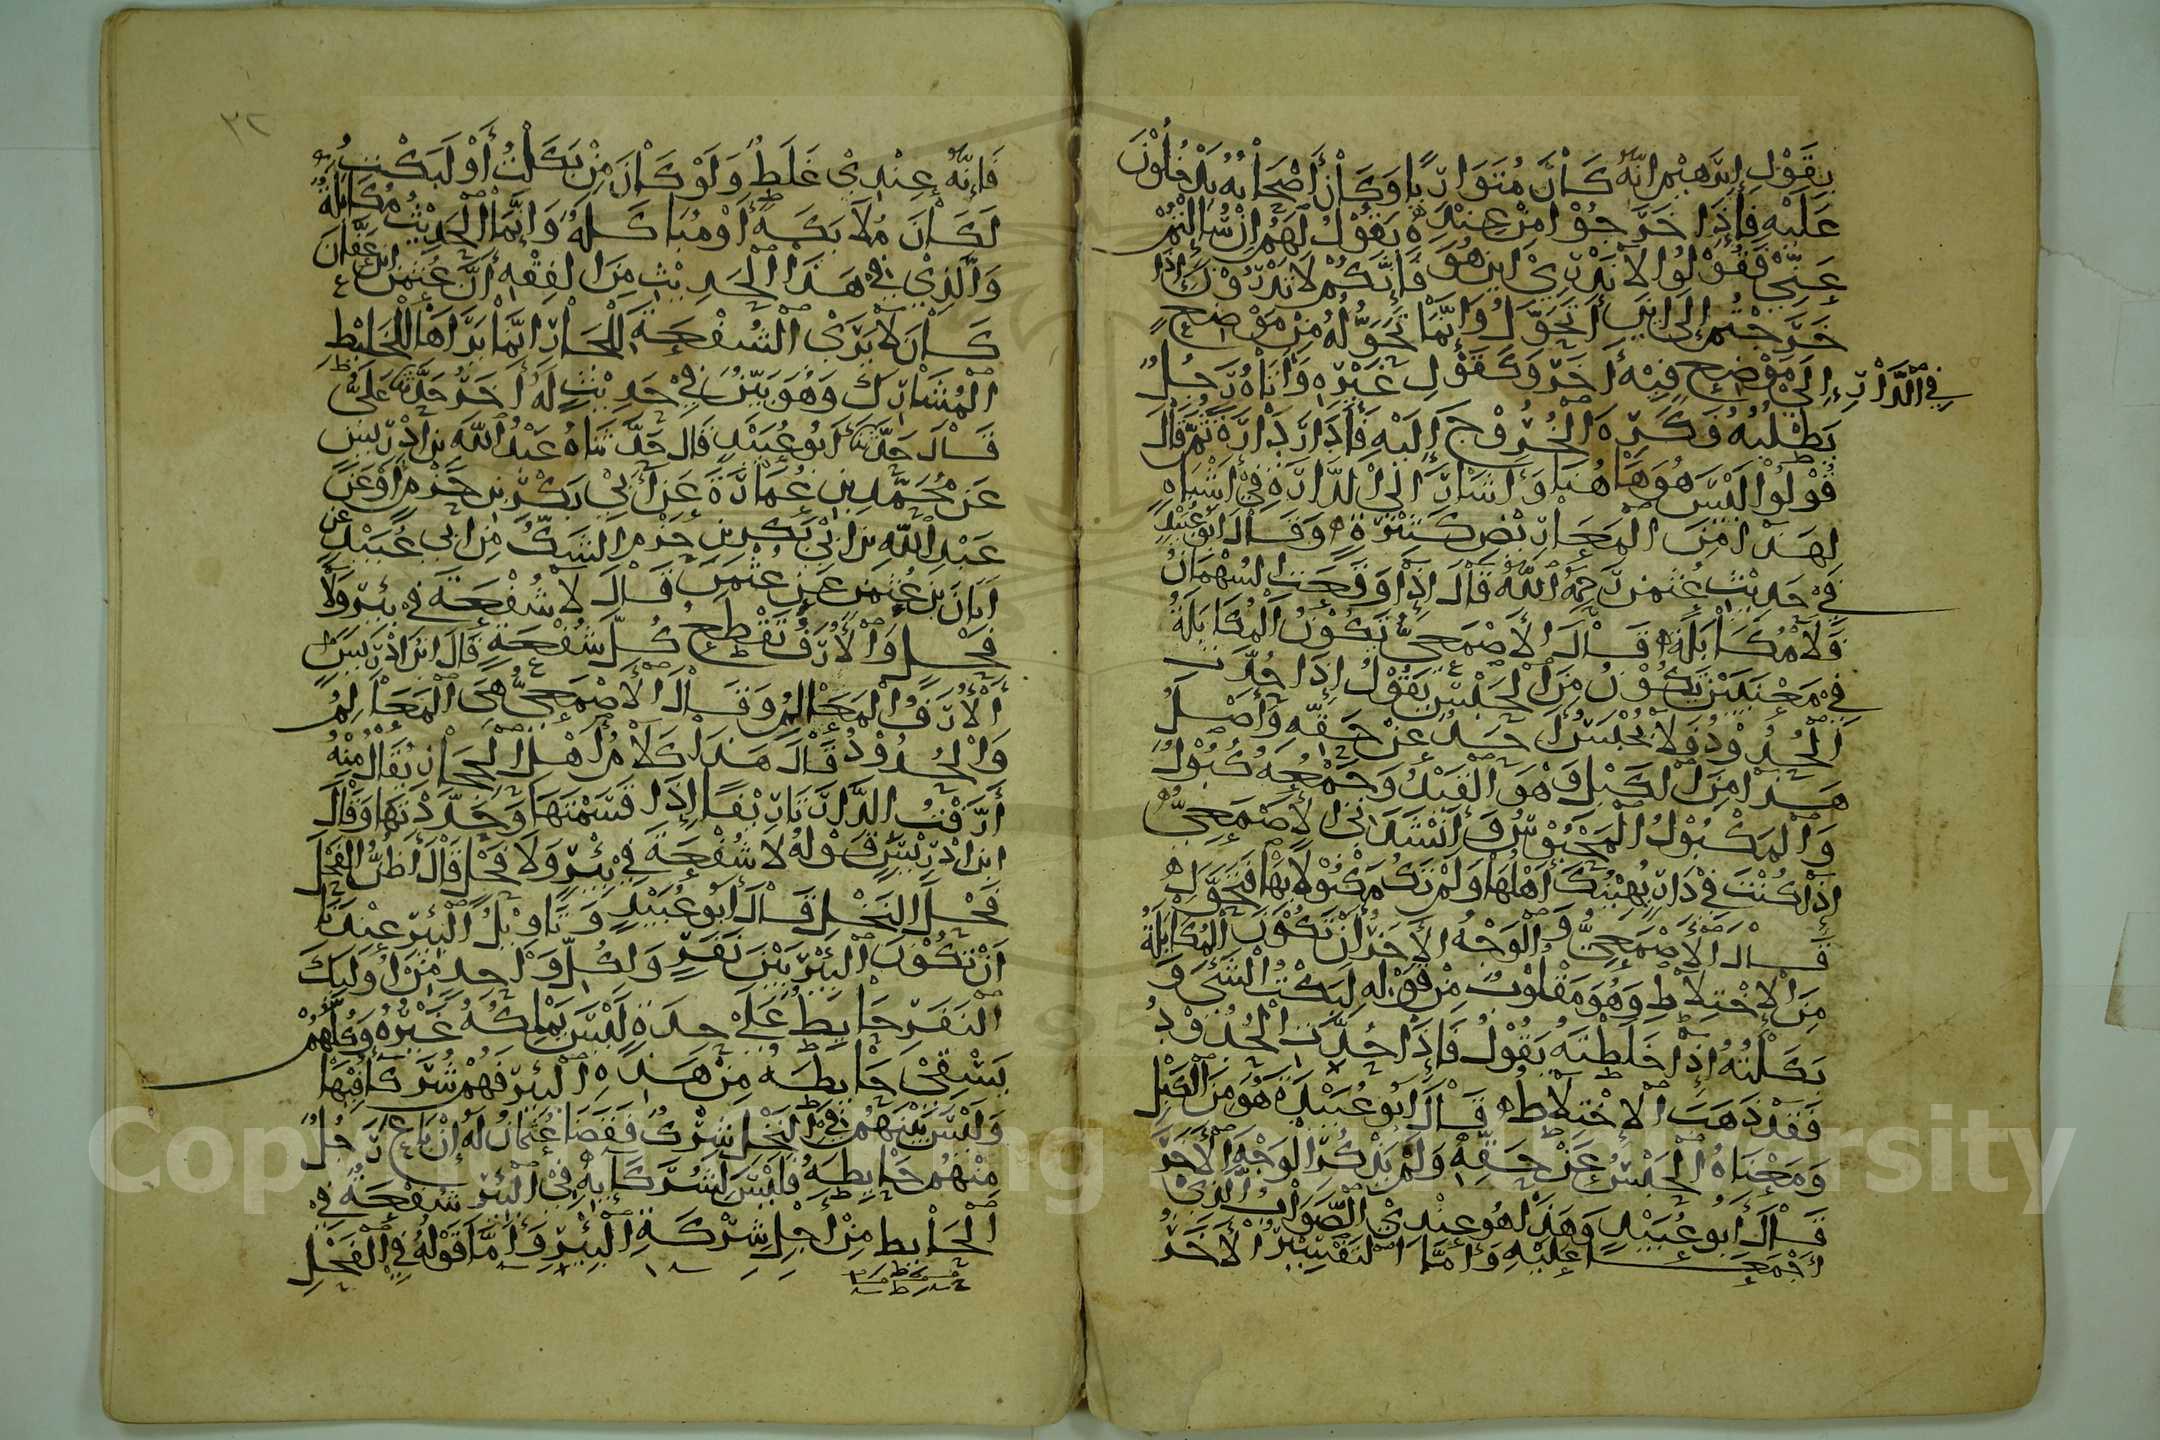 بِقَوْلِ إِبْرَهِيْمَ انَّهُ كَاْنَ مُتَوَارِيًا وَكَاْنَ أَصْحَاْبُهُ يَدْخُلُوْنَ
عَلَيْهِ فإِذَا خَرَجُوْا مِنْ عِنْدِهِ يَقُوْلُ لَهُم إِنْ سُاِلْتُمْ
عَنِّي فَقُوْلُوا لَا نَدْرِيْ اين هُوَ فَإِنَّكُم لَا تَدْرُوْنَ اِذَا
خَرَجْتُم إِلَى اينَ أَتَحَوَّلُ وَإِنَّمَا تَحَوُّلُهُ مِنْ مَوْضِعٍ
فِي الدَّاْرِ إِلَى مَوْضِعٍ فِيْهِ أَخَرَ وَكَقَوْلِ غَيْرِهِ وَأَتَاْهُ رَجُلٌ
يَطْلُبُهُ فَكَرِهَ الْخُرُوْجَ إِلَيْهِ فَأَدَارَ دَاْرَةً ثُمَّ قَالَ
قُوْلُوْا لَيْسَ هُوَ هَاْهُنَا وَأَشَاْرَ الَى الدَّاْرَةِ فِيْ اَشْبَاهٍ
لِهَذَا مِنَ الْمَعَارِيْضِ كَثِيْرَةٍ ه وَقَالَ ابُو عُبَيْدٍ
فِيْ حَدِيْثِ عُثْمن رَحِمَهُ اللَّهُ قَالَ اِذَا وَقَعَتِ السُّهْمَاْنُ
فَلَاْ مُكَاْبَلَةَ ه قَاْلَ الأَصْمَعِيُّ تَكُوْنُ الْمُكَابَلَةُ
فِيْ مَعْنَيَيْنِ يَكُوْنُ مِنَ الْحَبْسِ يَقُوْلُ إِذَا حُدَّتِ
الْحُدُوْدُ فَلَاْ يُحْبَسُ أَحَدٌ عَنْ حَقِّهِ وَأَصْلُ
هَذَا مِنَ الْكَبْلِ وَهُوَ الْقَيْدُ وَجَمْعُهُ كُبُوْلٌ
وَالْمَكْبُوْلُ الْمَحْبُوْسُ وَأَنْشَدَنِى الأَصْمَعِيُّ
إِذَا كُنْتَ فِيْ دَاْرٍ يُهِيْنُكَ أَهْلُهَا وَلَمْ تَكُ مَكْبُوْلًا بِهَا فَتَحَوَّلِ ه
قَاْلَ الأَصْمَعِيُّ وَالْوَجْهُ الأَخَرُ أَنْ تَكُوْنَ الْمُكَابَلَةُ
مِنَ الإِخْتِلَاْطِ وَهُوَ مَقْلُوْبٌ مِنْ قَوْلِهِ لَبَكْتُ الشَّيْ وَ
بَكَلْتُهُ إِذَا خَلَطْتَهُ يَقُوْلُ فَإِذَا حُدَّتِ الْحُدُوْدُ
فَقَدْ ذَهَبَ الإِخْتِلَاْطُ ه قَالَ ابُو عُبَيْدَةَ هُوَ مِنَ الْكَبْلِ
وَمَعْنَاهُ الْحَبْسُ عَنْ حَقِّهِ وَلَمْ يَذْكُرِ الْوَجْهَ الأَخَرَ
قَاْلَ أَبُو عُبَيْدٍ وَهَذَا هُو عِنْدِيْ الصَّوَابُ الَّذِيْ
أَجْمَعَا عَلَيْهِ وَأَمَّا التَّفْسِيْرُ الأَخَرُ
٣٢
فَاِنَّهُ عِنْدِيْ غَلَطٌ وَلَوْ كَاْنَ مِنْ بَكَلْتُ أَوْ لَبَكْتُ
لَكَاْنَ مُلَابَكَةً أَوْ مُبَاكَلَةً وَإِنَّمَا الْحَدِيْثُ مُكَابَلَةٌ
وَالَّذِيْ فِيْ هَذَا الْحَدِيْثِ مِنَ الْفِقْهِ أَنَّ عُثْمنَ ابْنَ عَفَّانَ
كَاْنَ لَاْ يَرَى الشُّفْعَةَ لِلْجَاْرِ اِنَّمَا يَرَاهَا لِلْخَلِيْطِ
الْمُشَاْرِكَ وَهُوَ بَيِّنٌ فِيْ حَدِيْثٍ لَهُ أَخَرَ حَدَّثَنَا عَلِيٌّ
قَاْلَ حَدَّثَنَا أَبُو عُبَيْدٍ قَال حَدَّثَنَاهُ عَبْدُ اللَّهِ بن اِدْرِيْسَ
عَنْ مُحَمَّدِ بنِ عُمَاْرَةَ عَن أَبِيْ بَكْرِ بنِ حَزْمٍ أَوْ عَنْ
عَبْدِ اللَّهِ بن أَبِيْ بَكرِ بنِ حَزْمٍ الشَّكُّ مِن ابى عُبَيْدٍ عن
أَبَانَ بنِ عُثمنَ عَن عُثْمنَ قَاْلَ لَا شُفْعَةَ فِي بِئْرٍ وَلَا
فَحْلٍ وَالأُرَفُ تَقْطَعُ كُلَّ شُفْعَةٍ قَالَ ابنُ اِدْرِيْسَ
الأُرَفُ الْمَعَاْلِمُ وَقَاْلَ الأَصْمَعِيُّ هِيَ الْمَعَاْلِمُ
وَالْحُدُوْدُ قَاْلَ هَذَا كَلَاْمُ أَهْلِ الْحِجَازِ يُقَاْلُ مِنْهُ
أَرَّفْتُ الدَّارَ تَارِيْفًا إِذَا قَسَمْتَهَا وَحَدَّدْتَهَا وَقَاْلَ
ابن اِدْرِيْسَ قَوْلُهُ لَا شُفْعَةَ فِيْ بِئْرٍ وَلَا فَحْلٍ قَاْلَ أَظُنُّ الفَحْلَ
فَحْلَ النَّخْلِ قَاْلَ أَبُو عُبَيْدٍ وَتَاوِيْلُ الْبِئْرِ عِنْدَنَا
أَنْ تَكُوْنَ الْبِئْرُ بَيْنَ نَفَرٍ وَلِكُلِّ وَاْحِدٍ مِنْ أُوْلَيِكَ
النَّفَرِ حَاْيِطٌ عَلَى حِدَةٍ لَيْسَ يَمْلِكُهُ غَيْرُهُ وَكُلُّهُمْ
يَسْقِيْ حَاْيِطَهُ مِنْ هَذِهِ الْبِئْرِ فَهُمْ شُرَكَا فِيْهَا
وَلَيْسَ بَيْنَهُمْ فِي النَّخْلِ شِرْكٌ فَقَضَا عُثْمَانُ لَهُ إِنْ بَاعَ رَجُلٌ
مِنْهُم حَاْيِطَهُ فَلَيْسَ لِشُرَكَايِهِ فِيْ الْبِئْرِ شُفْعَةٌ فِيْ
الْحَاْيِطِ مِنْ أَجْلِ شِرْكَةِ الْبِئْرِ وَأَمَّا قَوْلُهُ فِي الْفَحْلِ
Copy King University